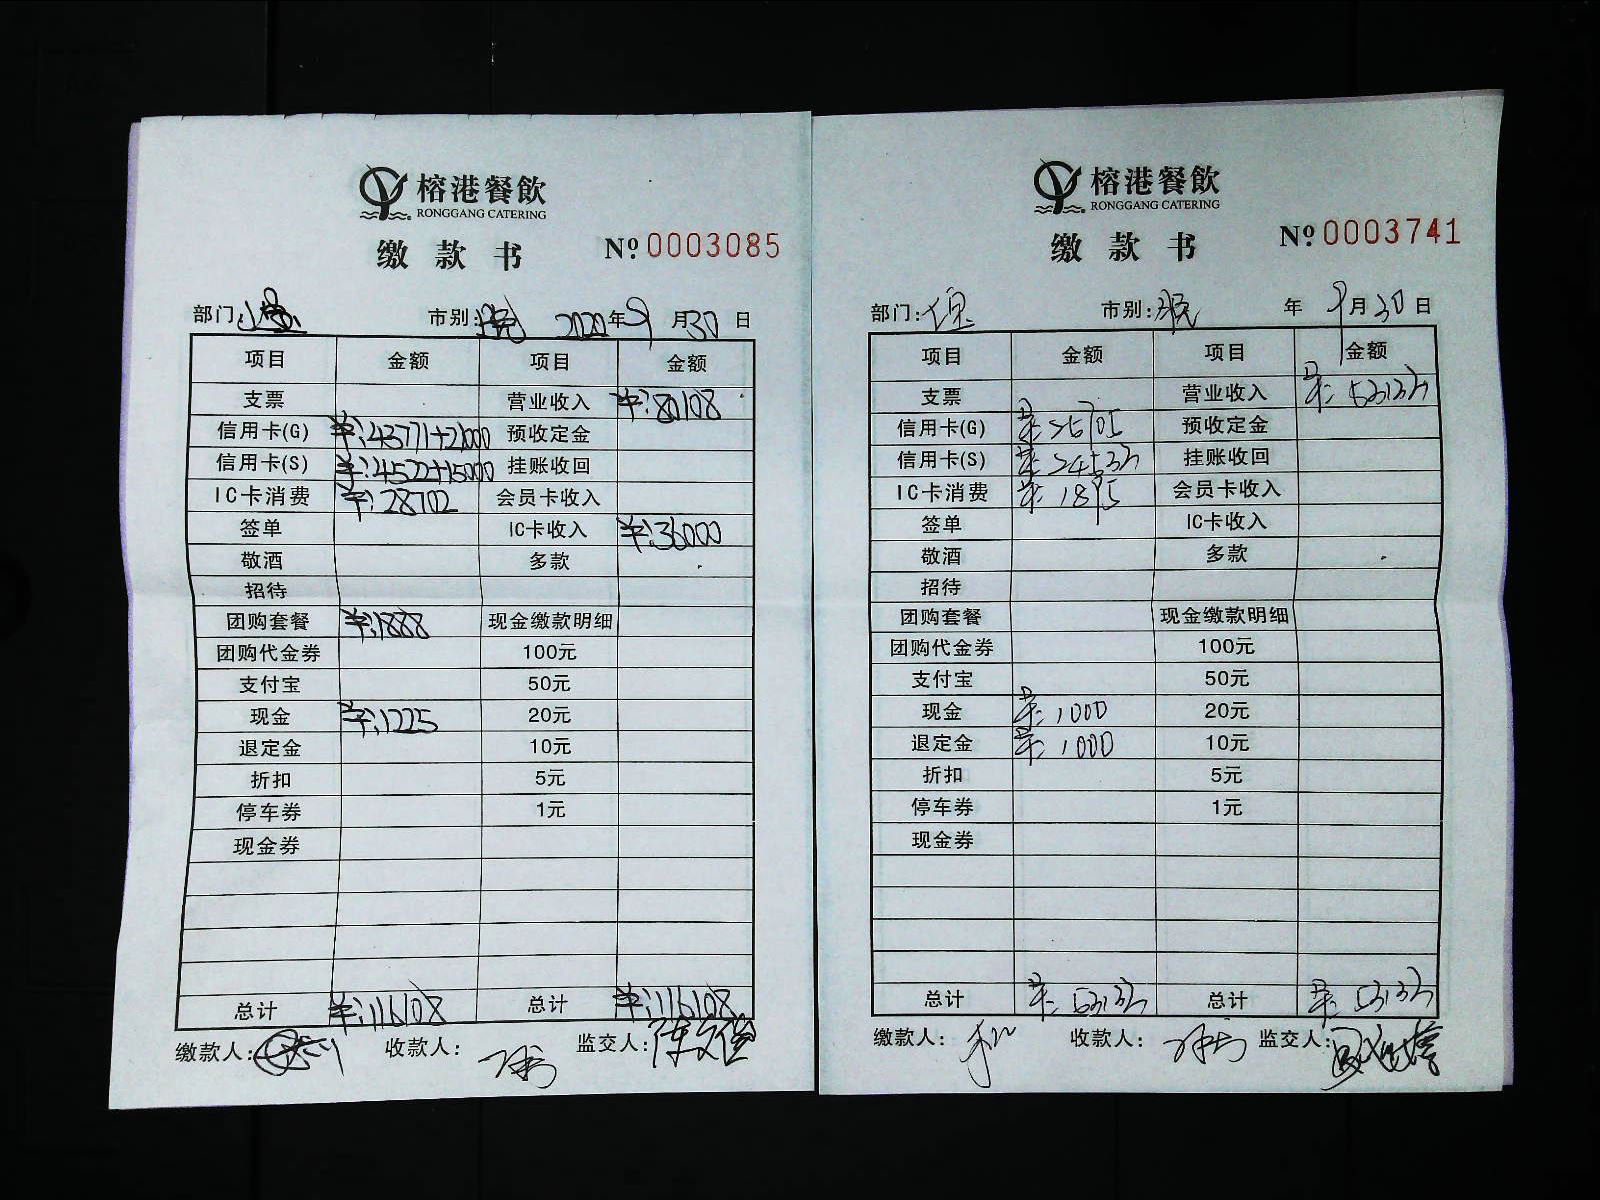 榕港餐飲
RONGGANG CATERING
缴款书
№ 0003085
部门: 市别:晚 2020年9月30日
项目 金额 项目 金额
支票 营业收入 ¥:80108
信用卡(G) ¥:43771+21000 预收定金
信用卡(S) ¥:4522+15000 挂账收回
IC卡消费 ¥:28702 会员卡收入
签单 IC卡收入 ¥:36000
敬酒 多款
招待
团购套餐 ¥:1888 现金缴款明细
团购代金券 100元
支付宝 50元
现金 ¥:1225 20元
退定金 10元
折扣 5元
停车券 1元
现金券
总计 ¥:116108 总计 ¥:116108
缴款人: 收款人: 监交人:
榕港餐飲
RONGGANG CATERING
缴款书
№ 0003741
部门: 市别:晚 年9月30日
项目 金额 项目 金额
支票 营业收入
信用卡(G) 预收定金
信用卡(S) 挂账收回
IC卡消费 ¥:1895 会员卡收入
签单 IC卡收入
敬酒 多款
招待
团购套餐 现金缴款明细
团购代金券 100元
支付宝 50元
现金 ¥:1000 20元
退定金 ¥:1000 10元
折扣 5元
停车券 1元
现金券
总计 总计
缴款人: 收款人: 监交人: